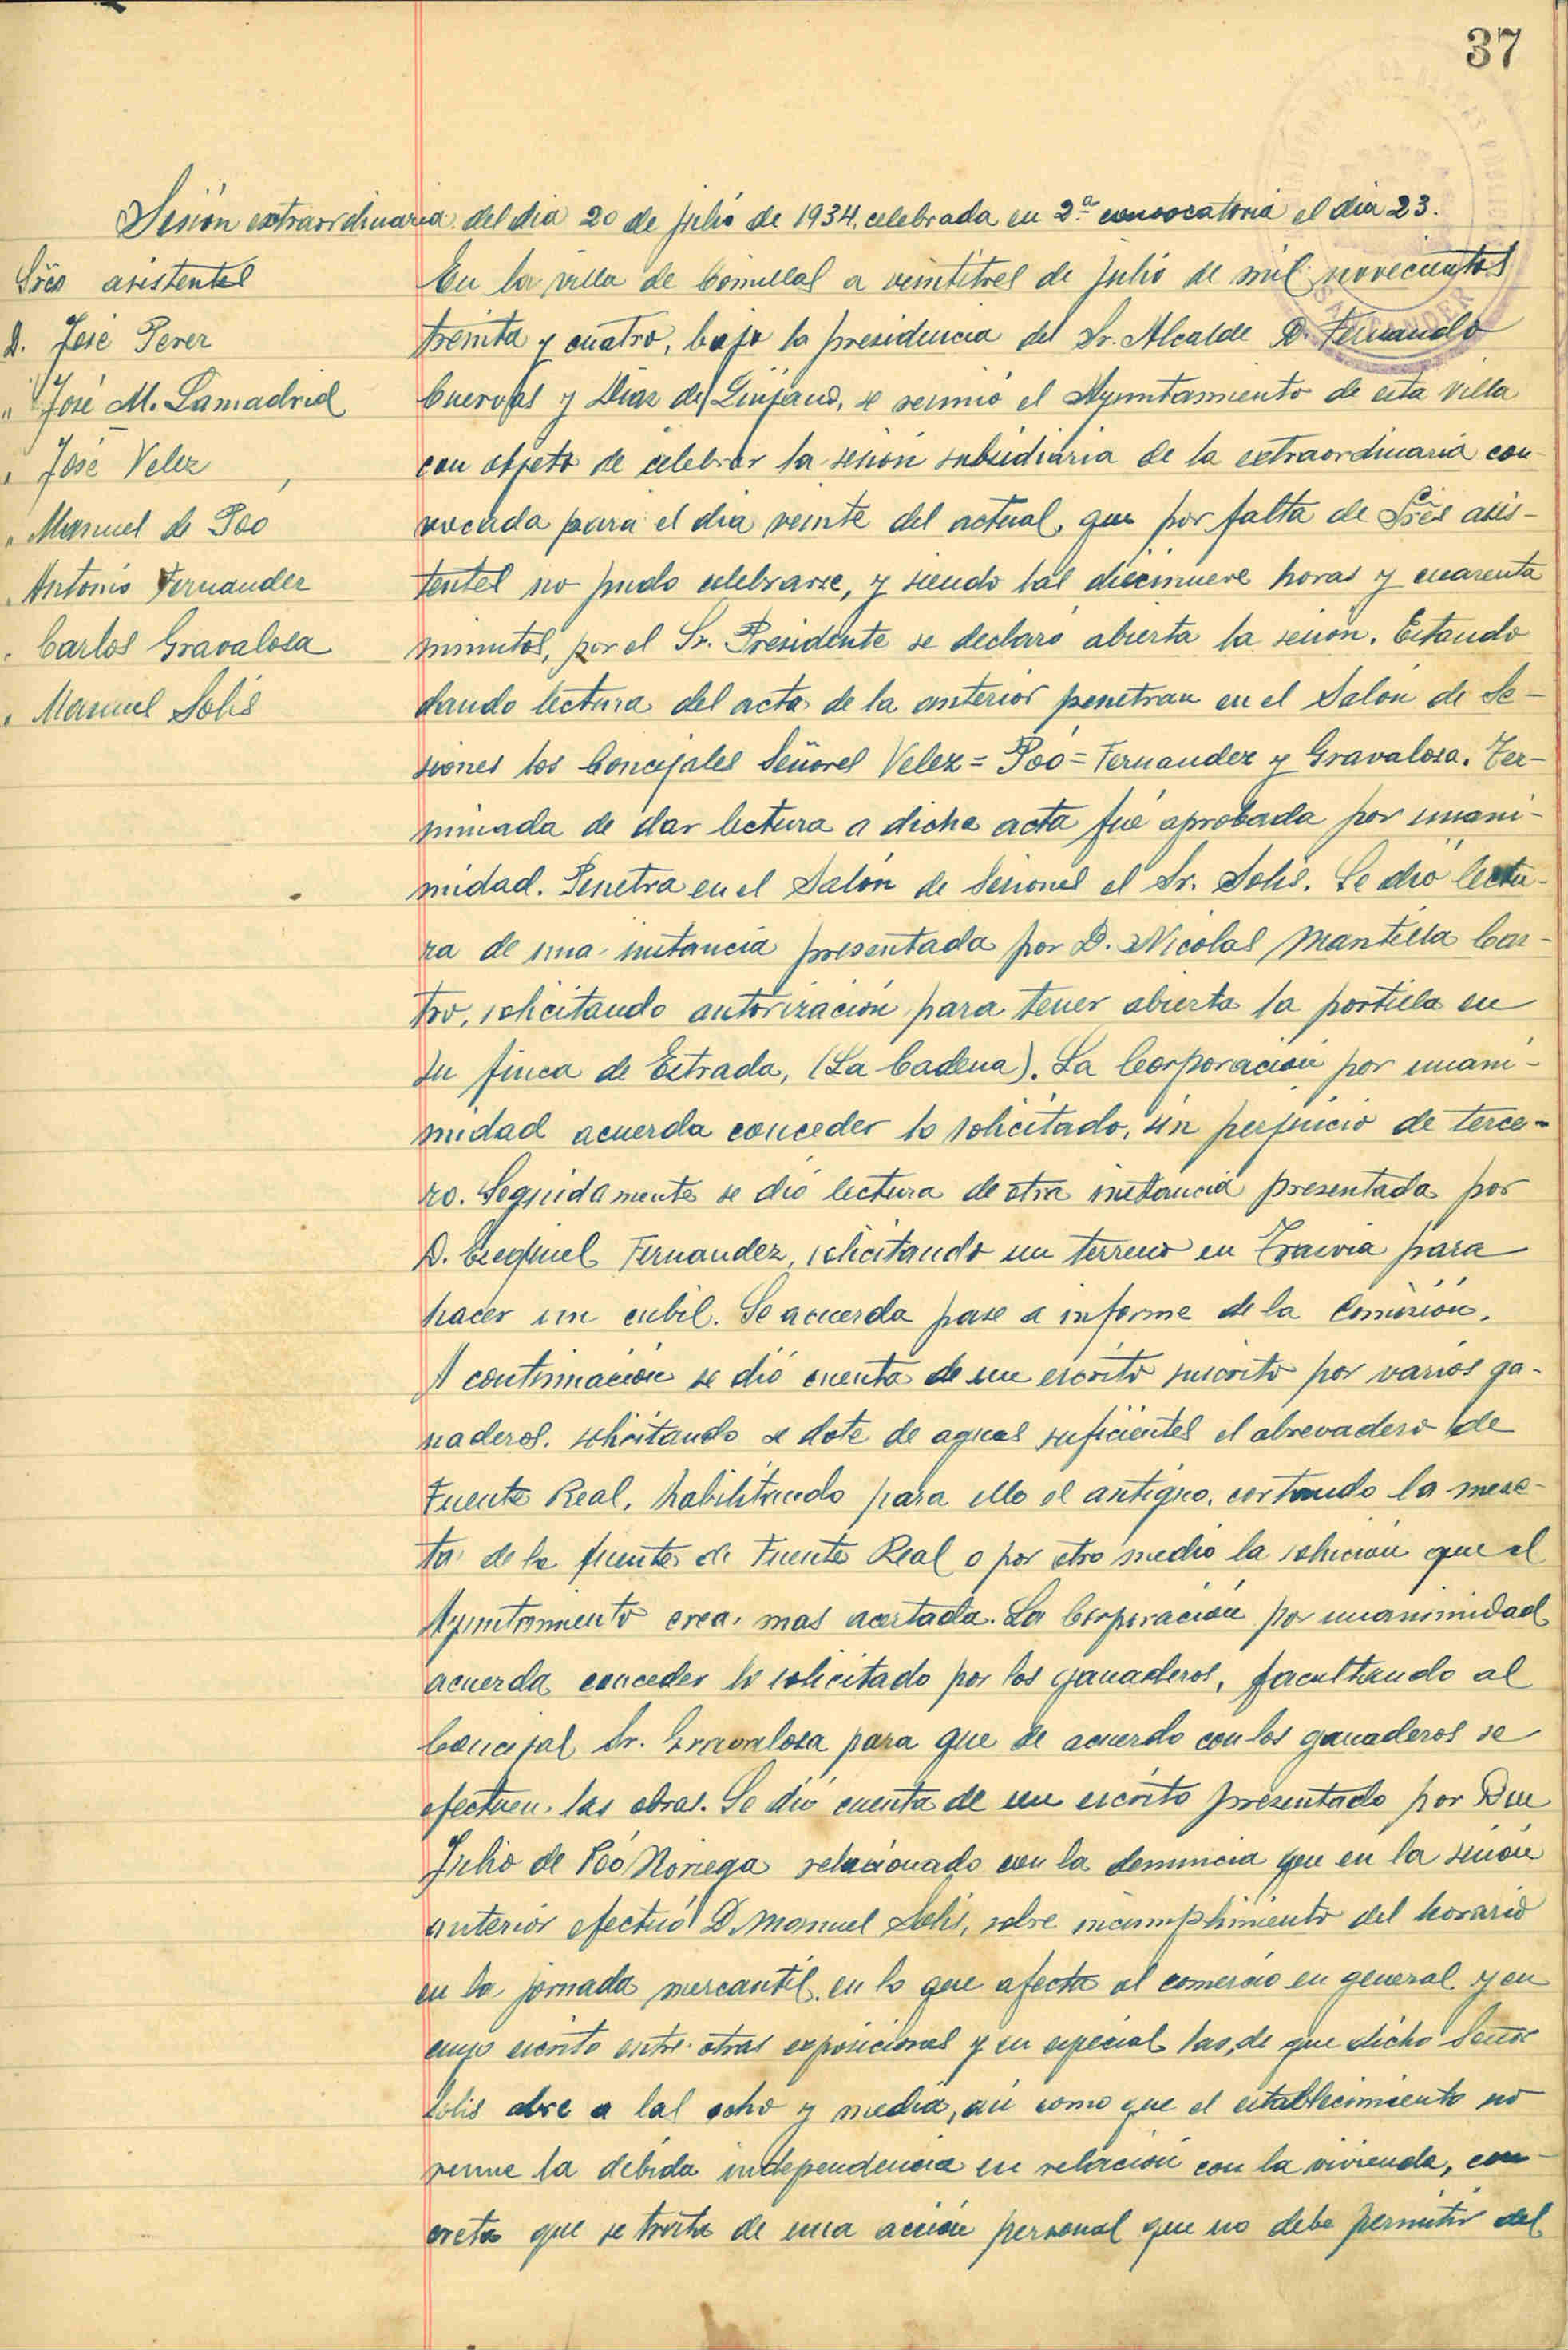 37
Sesión extraordinaria del dia 20 de julio de 1934, celebrada en 2ª convocatoria el dia 23.
Sres asistentes
D. José Perez
" José M. Lamadrid
" José Velez
" Manuel de Poó
" Antonio Fernandez
" Carlos Gravalosa
" Manuel Solis
En la villa de Comillas a veintitres de julio de mil novecientos
treinta y cuatro, bajo la presidencia del Sr. Alcalde D. Fernando
Cuevas y Diaz de Quijano, se reunió el Ayuntamiento de esta villa
con objeto de celebrar la sesión subsidiaria de la extraordinaria con-
vocada para el dia veinte del actual, que por falta de Sres asis-
tentes no pudo celebrarse, y siendo las diecinueve horas y cuarenta
minutos, por el Sr. Presidente se declaró abierta la sesion. Estando
dando lectura del acta de la anterior penetran en el Salón de Se-
siones los Concejales Señores Velez = Poó = Fernandez y Gravalosa. Ter-
minada de dar lectura a dicha acta fué aprobada por unani-
midad. Penetra en el Salón de Sesiones el Sr. Solis. Se dió lectu-
ra de una instancia presentada por D. Nicolas Mantilla Cas-
tro, solicitando autorización para tener abierta la portilla en
su finca de Estrada, (La Cadena). La Corporación por unani-
midad acuerda conceder lo solicitado, sin perjuicio de terce-
ro. Seguidamente se dió lectura de otra instancia presentada por
D. Ezequiel Fernandez, solicitando un terreno en Trasvia para
hacer un cubil. Se acuerda pase a informe de la Comisión.
A continuación se dió cuenta de un escrito suscrito por varios ga-
naderos, solicitando se dote de aguas suficientes el abrevadero de
Fuente Real, habilitando para ello el antiguo, cortando la mese-
ta de la fuente de Fuente Real o por otro medio la solución que el
Ayuntamiento crea mas acertada. La Corporación por unanimidad
acuerda conceder lo solicitado por los ganaderos, facultando al
Concejal Sr. Gravalosa para que de acuerdo con los ganaderos se
efectuen las obras. Se dió cuenta de un escrito presentado por Don
Julio de Poó Noriega relacionado con la denuncia que en la sesión
anterior efectuó D. Manuel Solis, sobre incumplimiento del horario
en la jornada mercantil, en lo que afecta al comercio en general y en
cuyo escrito entre otras exposiciones y en especial las, de que dicho Señor
Solis abre a las ocho y media, asi como que el establecimiento no
reune la debida independencia en relación con la vivienda, con-
creta que se trata de una acción personal que no debe permitir del